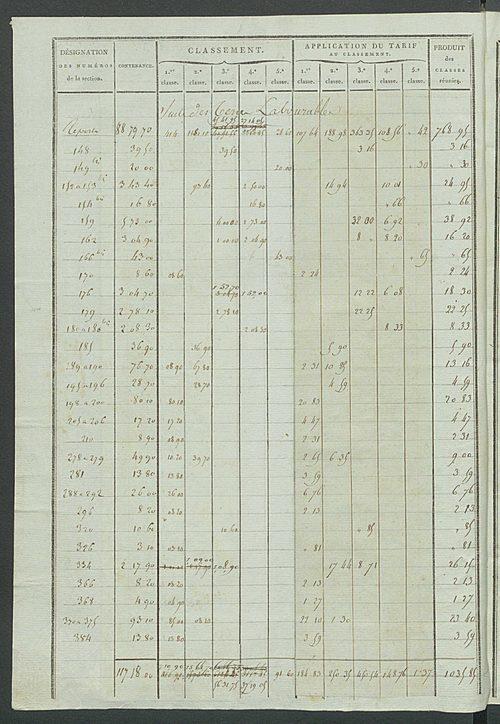 DÉSIGNATION DES NUMÉROS de la section.
CONTENANCE.
CLASSEMENT.
1.re classe. 2.e classe. 3.e classe. 4.e classe. 5.e classe.
APPLICATION DU TARIF AU CLASSEMENT.
1.re classe. 2.e classe. 3.e classe. 4.e classe. 5.e classe.
PRODUIT des CLASSES réunies.
Suite des Terres Labourables
Report 88 79 70 28 60 107 64 188 98 363 35 108 56 " 42 768 95
148 39 50 39 50 3 16 3 16
149 bis 20 00 20 00 " 30 " 30
152 a 153 bis 3 43 40 93 40 2 50 00 14 94 10 01 24 95
154 bis 16 80 16 80 " 66 " 66
159 5 73 00 4 00 00 1 73 00 32 00 6 92 38 92
162 3 04 90 1 00 00 2 04 90 8 " 8 20 16 20
166 bis 43 00 43 00 " 65 " 65
170 8 60 08 60 2 24 2 24
176 3 04 70 1 52 70 1 52 00 12 22 6 08 18 30
179 2 78 10 2 78 10 22 25 22 25
180 a 180 bis 2 08 30 2 08 30 8 33 8 33
185 36 90 36 90 5 90 5 90
189 a 190 76 70 08 90 67 80 2 31 10 85 13 16
195 a 196 28 70 28 70 4 59 4 59
198 a 200 80 10 80 10 20 83 20 83
205 a 206 17 20 17 20 4 47 4 47
210 8 90 08 90 2 31 2 31
278 a 279 49 90 10 20 39 70 2 65 6 35 9 00
281 13 80 13 80 3 59 3 59
288 a 292 26 00 26 00 6 76 6 76
296 8 20 08 20 2 13 2 13
320 10 60 10 60 " 85 " 85
326 3 10 03 10 " 81 " 81
334 2 17 90 1 09 00 1 08 90 17 44 8 71 26 15
366 8 20 08 20 2 13 2 13
368 4 90 04 90 1 27 1 27
370 a 375 93 10 85 00 08 10 22 10 1 30 23 40
384 13 80 13 80 3 59 3 59
117 18 00 56 31 75 37 19 05 91 60 184 83 250 35 148 76 1 37 1035 85